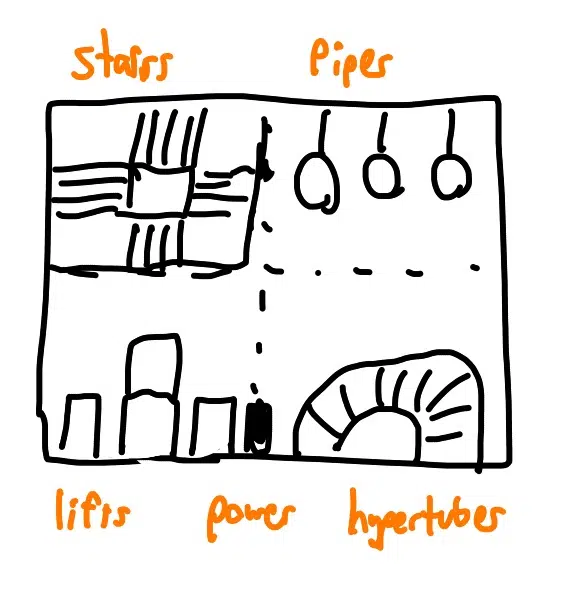 stairs
Pipes
lifts
power
hypertubes